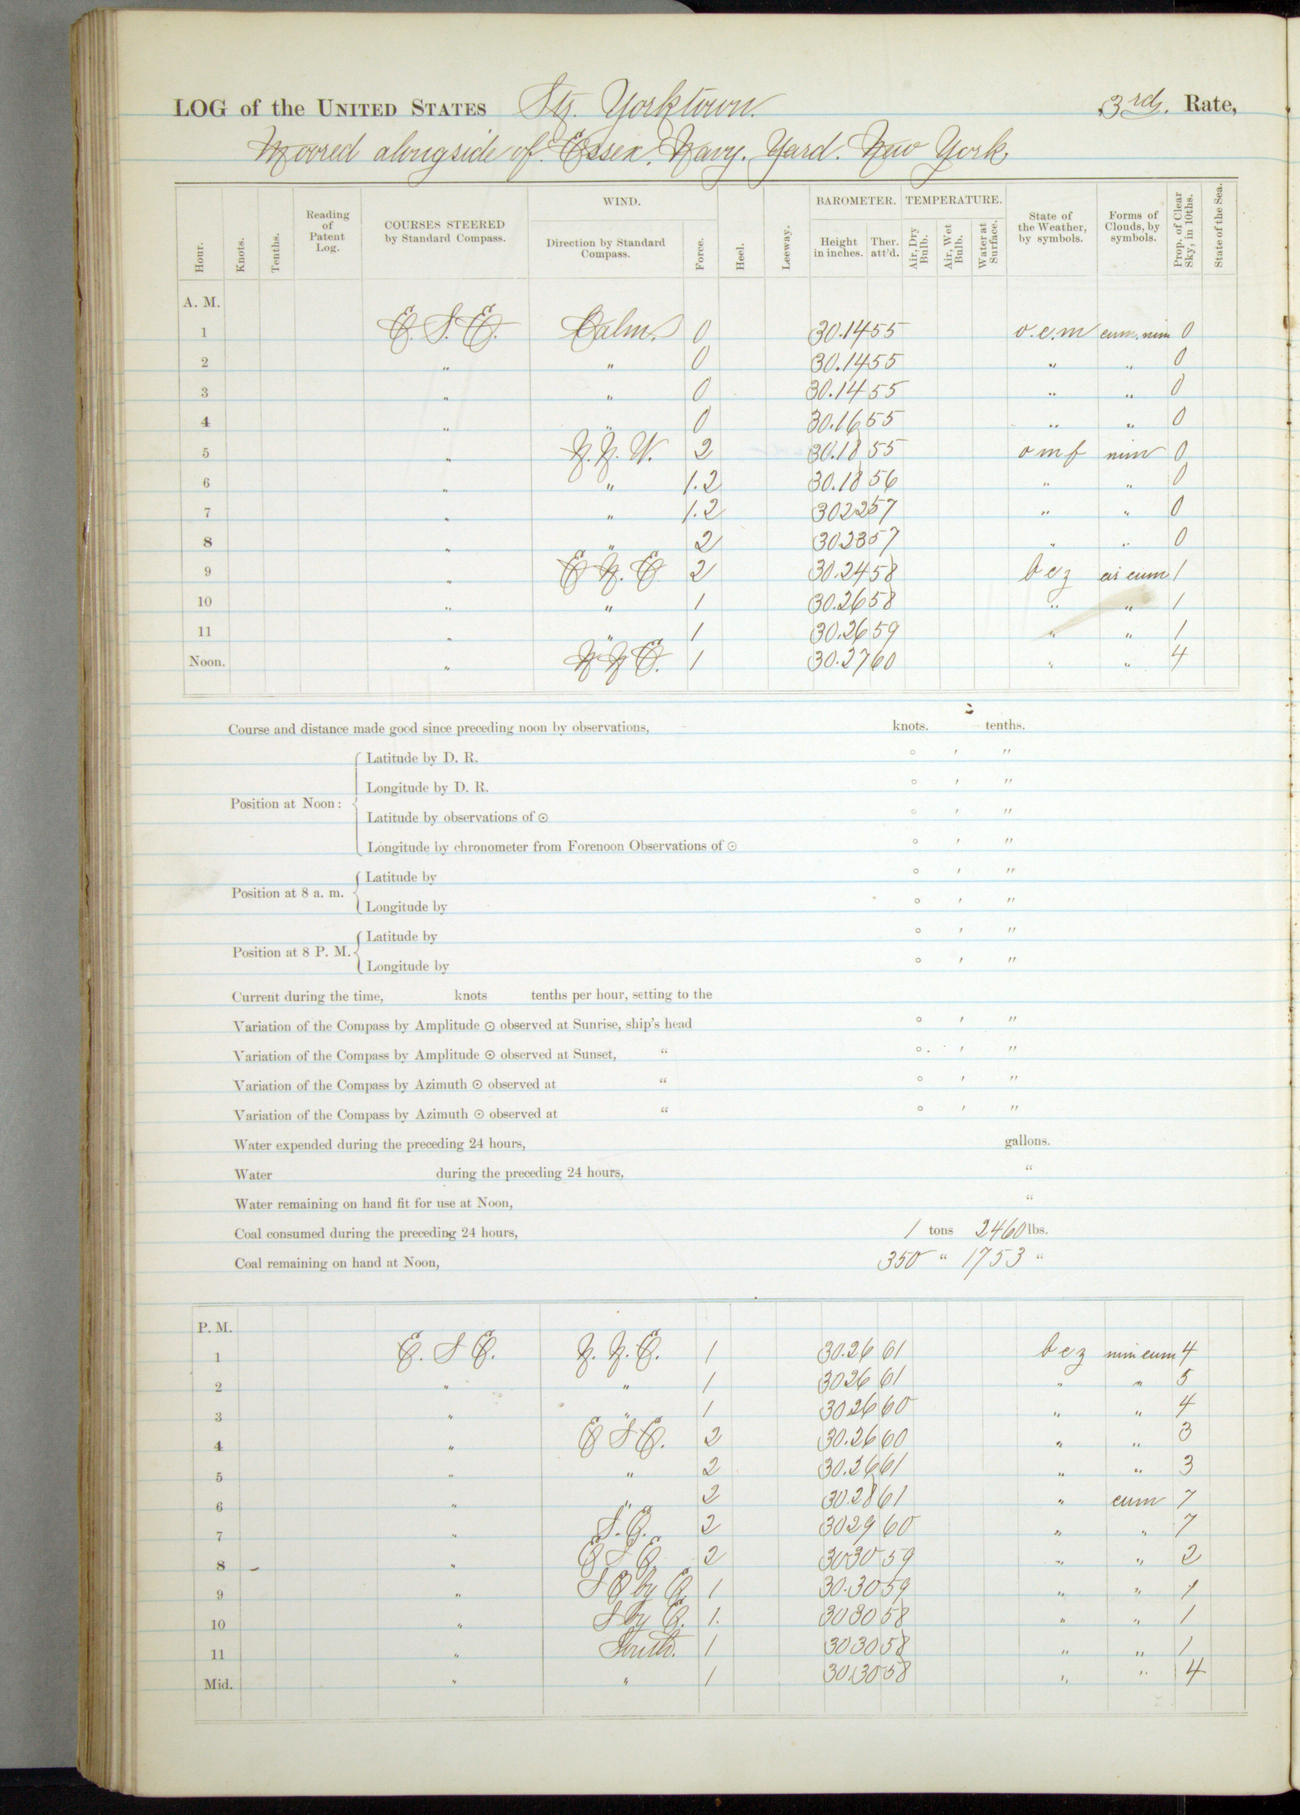 LOG of the UNITED STATES Str. Yorktown. 3rd. Rate,
Moored alongside of Essex. Navy. Yard. New York.
Hour. Knots. Tenths. Reading of Patent Log. COURSES STEERED by Standard Compass. WIND. Direction by Standard Compass. Force. Heel. Leeway. BAROMETER. Height in inches. Ther. att'd. TEMPERATURE. Air, Dry Bulb. Air, Wet Bulb. Water at Surface. State of the Weather, by symbols. Forms of Clouds, by symbols. Prop. of Clear Sky, in 10ths. State of the Sea.
A. M.
1 E. S. E. Calm. 0 30.14 55 o.c.m cum. nim 0
2 " " 0 30.14 55 " " 0
3 " " 0 30.14 55 " " 0
4 " " 0 30.16 55 " " 0
5 " N. N. W. 2 30.18 55 o m f nim 0
6 " " 1.2 30.18 56 " " 0
7 " " 1.2 30 22 57 " " 0
8 " " 2 30 23 57 " " 0
9 " E N. E 2 30.24 58 b c z cis cum 1
10 " " 1 30.26 58 " " 1
11 " " 1 30.26 59 " " 1
Noon. " N N E. 1 30.27 60 " " 4
Course and distance made good since preceding noon by observations, knots. tenths.
Position at Noon: Latitude by D. R. ° ′ ″
Longitude by D. R. ° ′ ″
Latitude by observations of ⊙ ° ′ ″
Longitude by chronometer from Forenoon Observations of ⊙ ° ′ ″
Position at 8 a. m. Latitude by ° ′ ″
Longitude by ° ′ ″
Position at 8 P. M. Latitude by ° ′ ″
Longitude by ° ′ ″
Current during the time, knots tenths per hour, setting to the
Variation of the Compass by Amplitude ⊙ observed at Sunrise, ship's head ° ′ ″
Variation of the Compass by Amplitude ⊙ observed at Sunset, " ° ′ ″
Variation of the Compass by Azimuth ⊙ observed at " ° ′ ″
Variation of the Compass by Azimuth ⊙ observed at " ° ′ ″
Water expended during the preceding 24 hours, gallons.
Water during the preceding 24 hours, "
Water remaining on hand fit for use at Noon, "
Coal consumed during the preceding 24 hours, 1 tons 2460 lbs.
Coal remaining on hand at Noon, 350 " 1753 "
P. M.
1 E. S E. N. N. E. 1 30.26 61 b c z nim cum 4
2 " " 1 30 26 61 " " 5
3 " " 1 30 26 60 " " 4
4 " E S E. 2 30.26 60 " " 3
5 " " 2 30.26 61 " " 3
6 " " 2 30.28 61 " cum 7
7 " S. E. 2 30 29 60 " " 7
8 " E S E 2 30 30 59 " " 2
9 " S E by E. 1 30.30 59 " " 1
10 " S by E. 1. 30 30 58 " " 1
11 " South. 1 30 30 58 " " 1
Mid. " " 1 30.30 58 " " 4